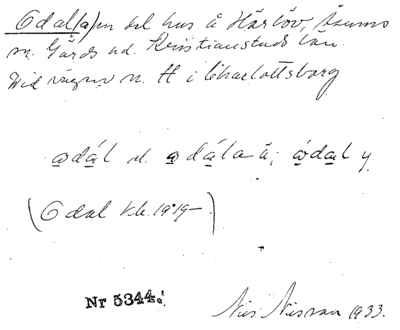 Odal(a)en del hus å Härlöv, Åsums
sn. Gärds hd. Kristianstads län.
Vid vägen n. H i Charlottsborg
odál el. odála å; ódal y
(Odal Kb. 1919-)
Nr 5344.
Nils Nilsson 1933.